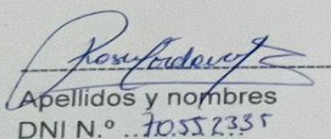 Apellidos y nombres
DNI N.º ..70.552335